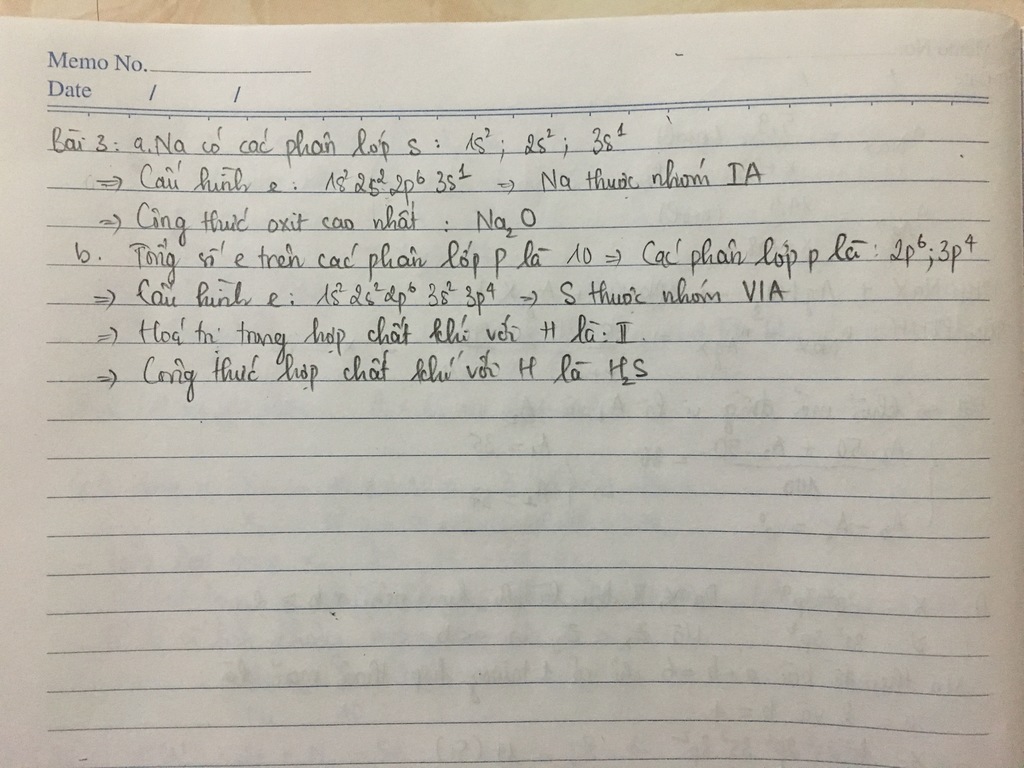 Memo No.
Date / /
Bài 3: a. Na có các phân lớp s: 1s²; 2s²; 3s¹
=> Cấu hình e: 1s² 2s² 2p⁶ 3s¹ => Na thuộc nhóm IA
=> Công thức oxit cao nhất: Na₂O
b. Tổng số e trên các phân lớp p là 10 => Các phân lớp p là: 2p⁶; 3p⁴
=> Cấu hình e: 1s² 2s² 2p⁶ 3s² 3p⁴ => S thuộc nhóm VIA
=> Hoá trị trong hợp chất khí với H là: II.
=> Công thức hợp chất khí với H là H₂S